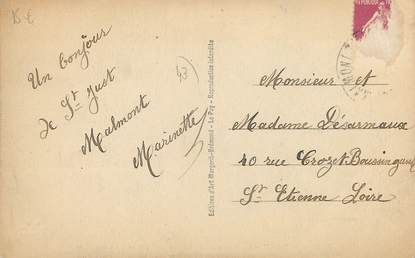 15 €
Un bonjour
de St Just
Malmont
Marinette
43
Editions d'Art Margerit-Brémond - Le Puy - Reproduction interdite
Monsieur et
Madame Désarmaux
40 rue Crozet-Boussingault
St Etienne Loire